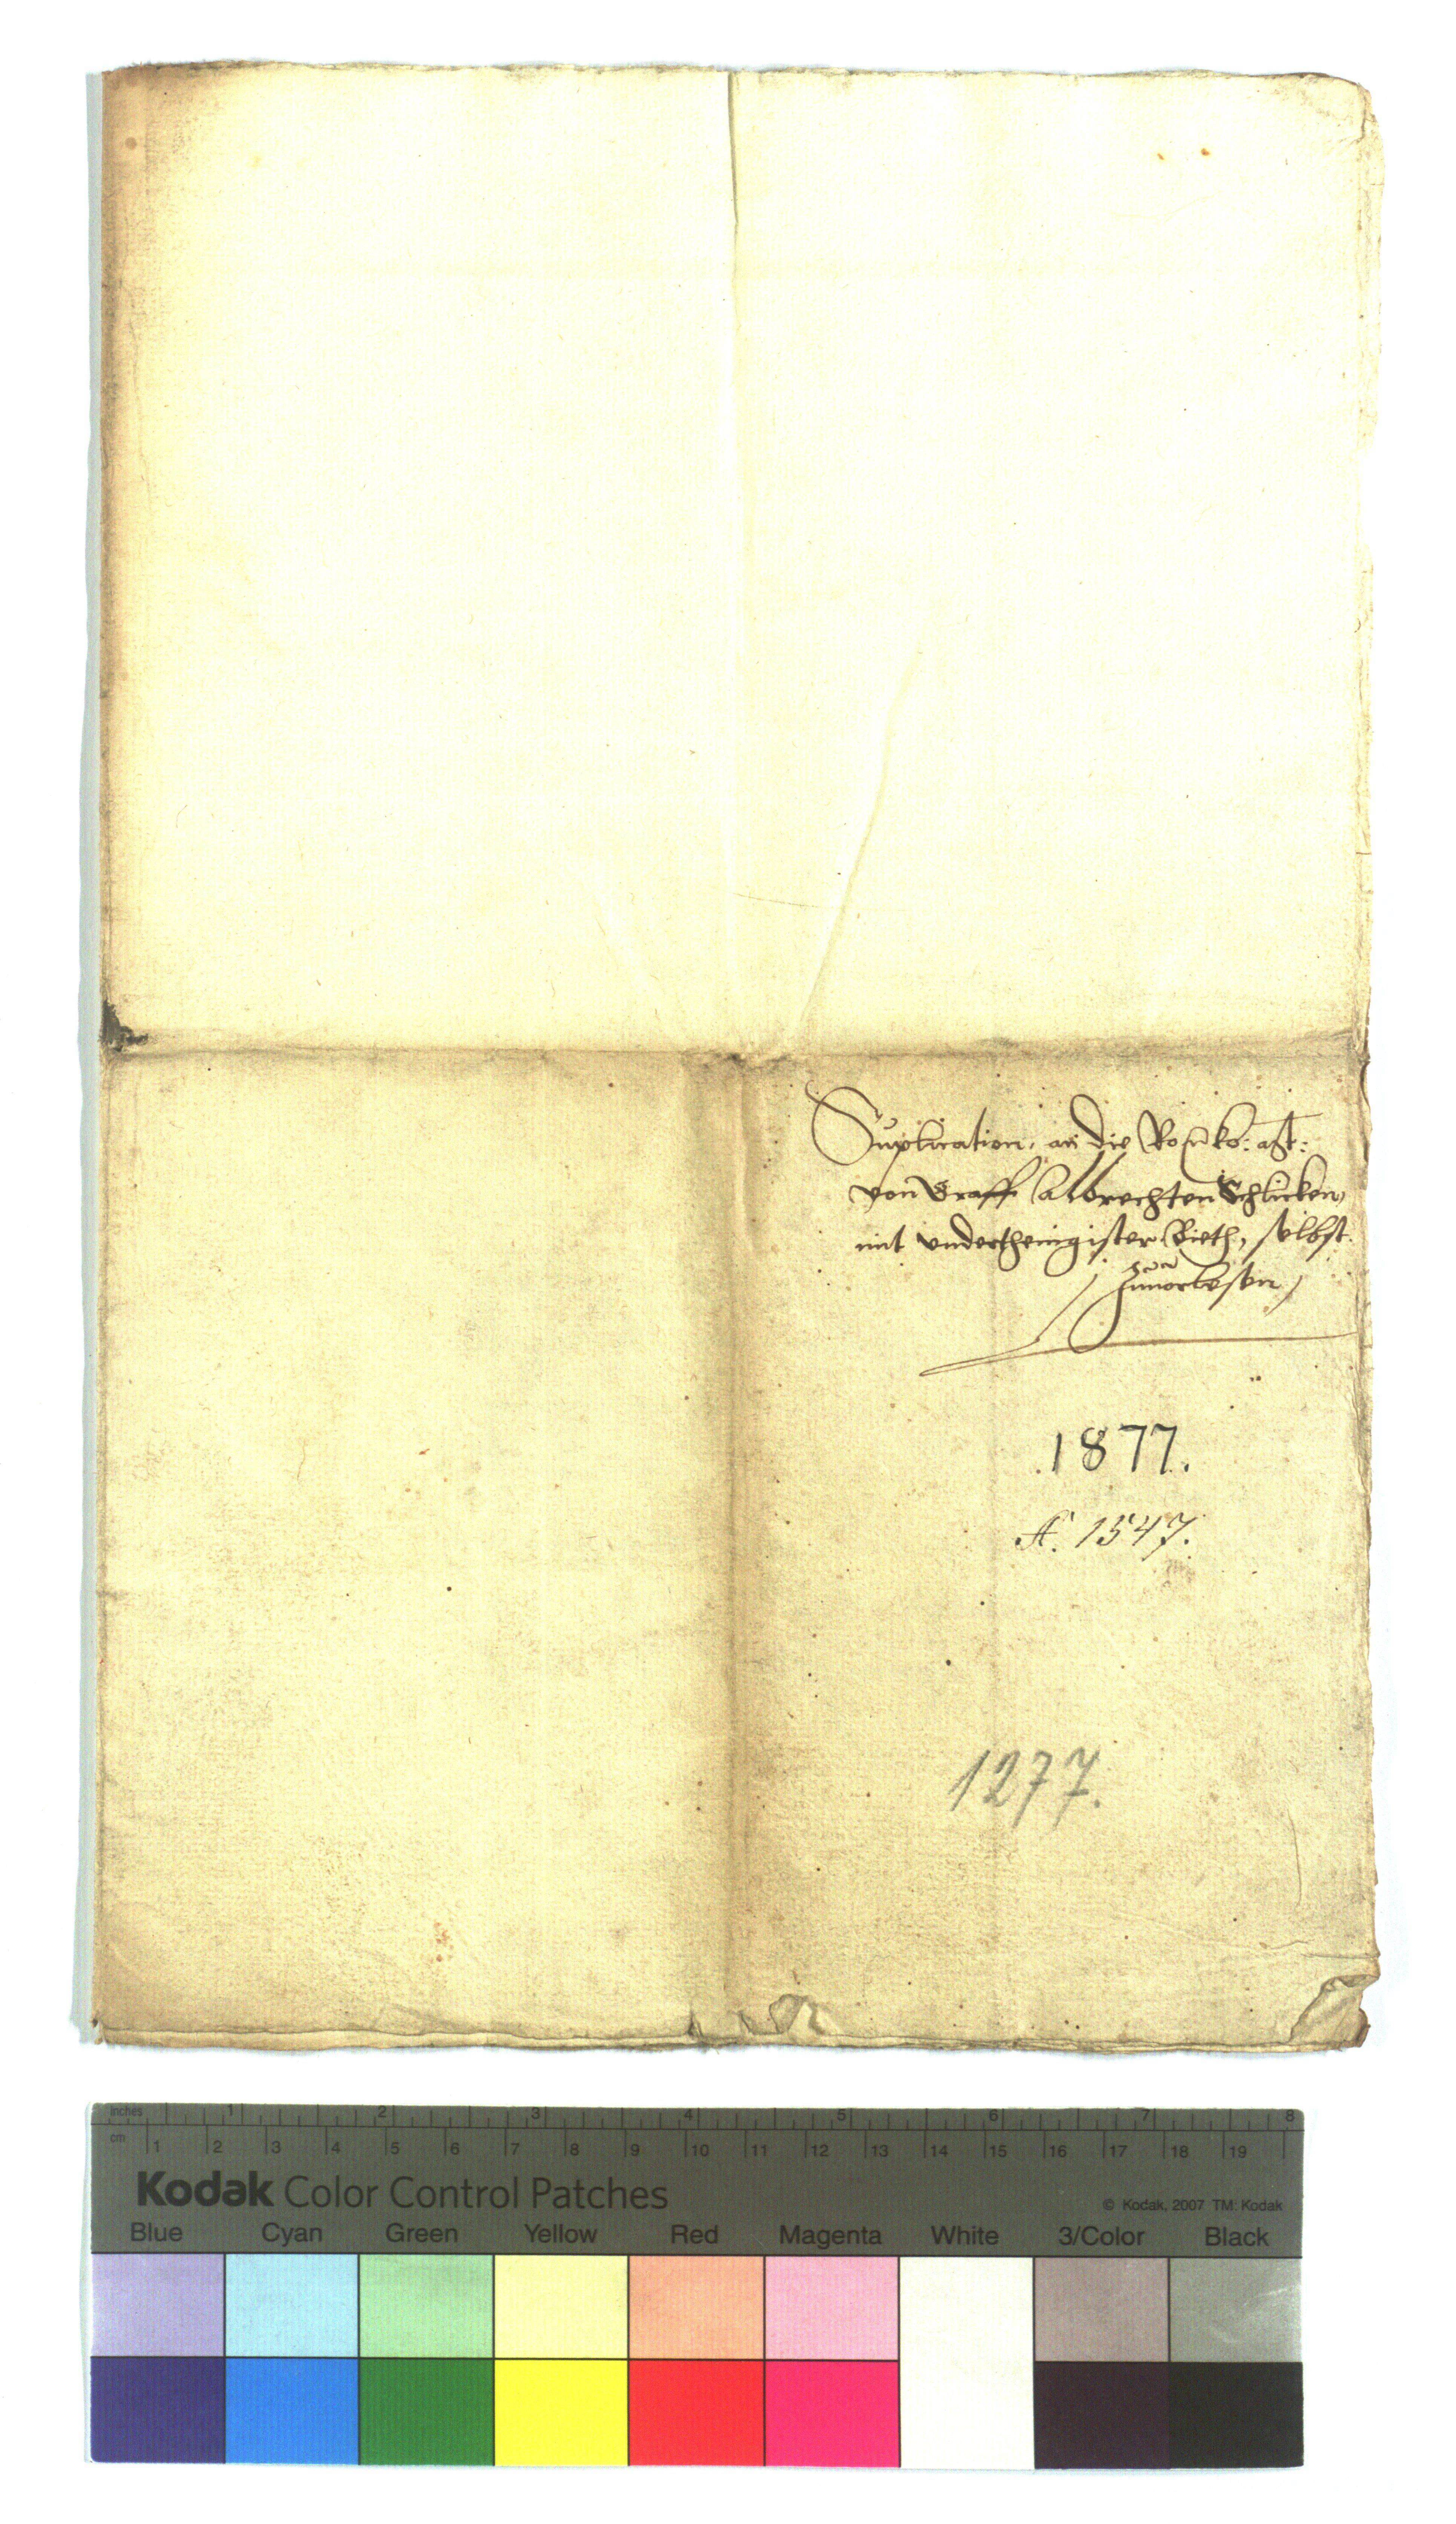 Suplication, an die Ro: Ko: Mt:
von Graff Albrechten Schlicken,
mit underthenigister Bieth, selbst
zuuorlesen
1877.
A. 1547.
1277.
inches 1 2 3 4 5 6 7 8
cm 1 2 3 4 5 6 7 8 9 10 11 12 13 14 15 16 17 18 19
Kodak Color Control Patches
© Kodak, 2007 TM: Kodak
Blue Cyan Green Yellow Red Magenta White 3/Color Black